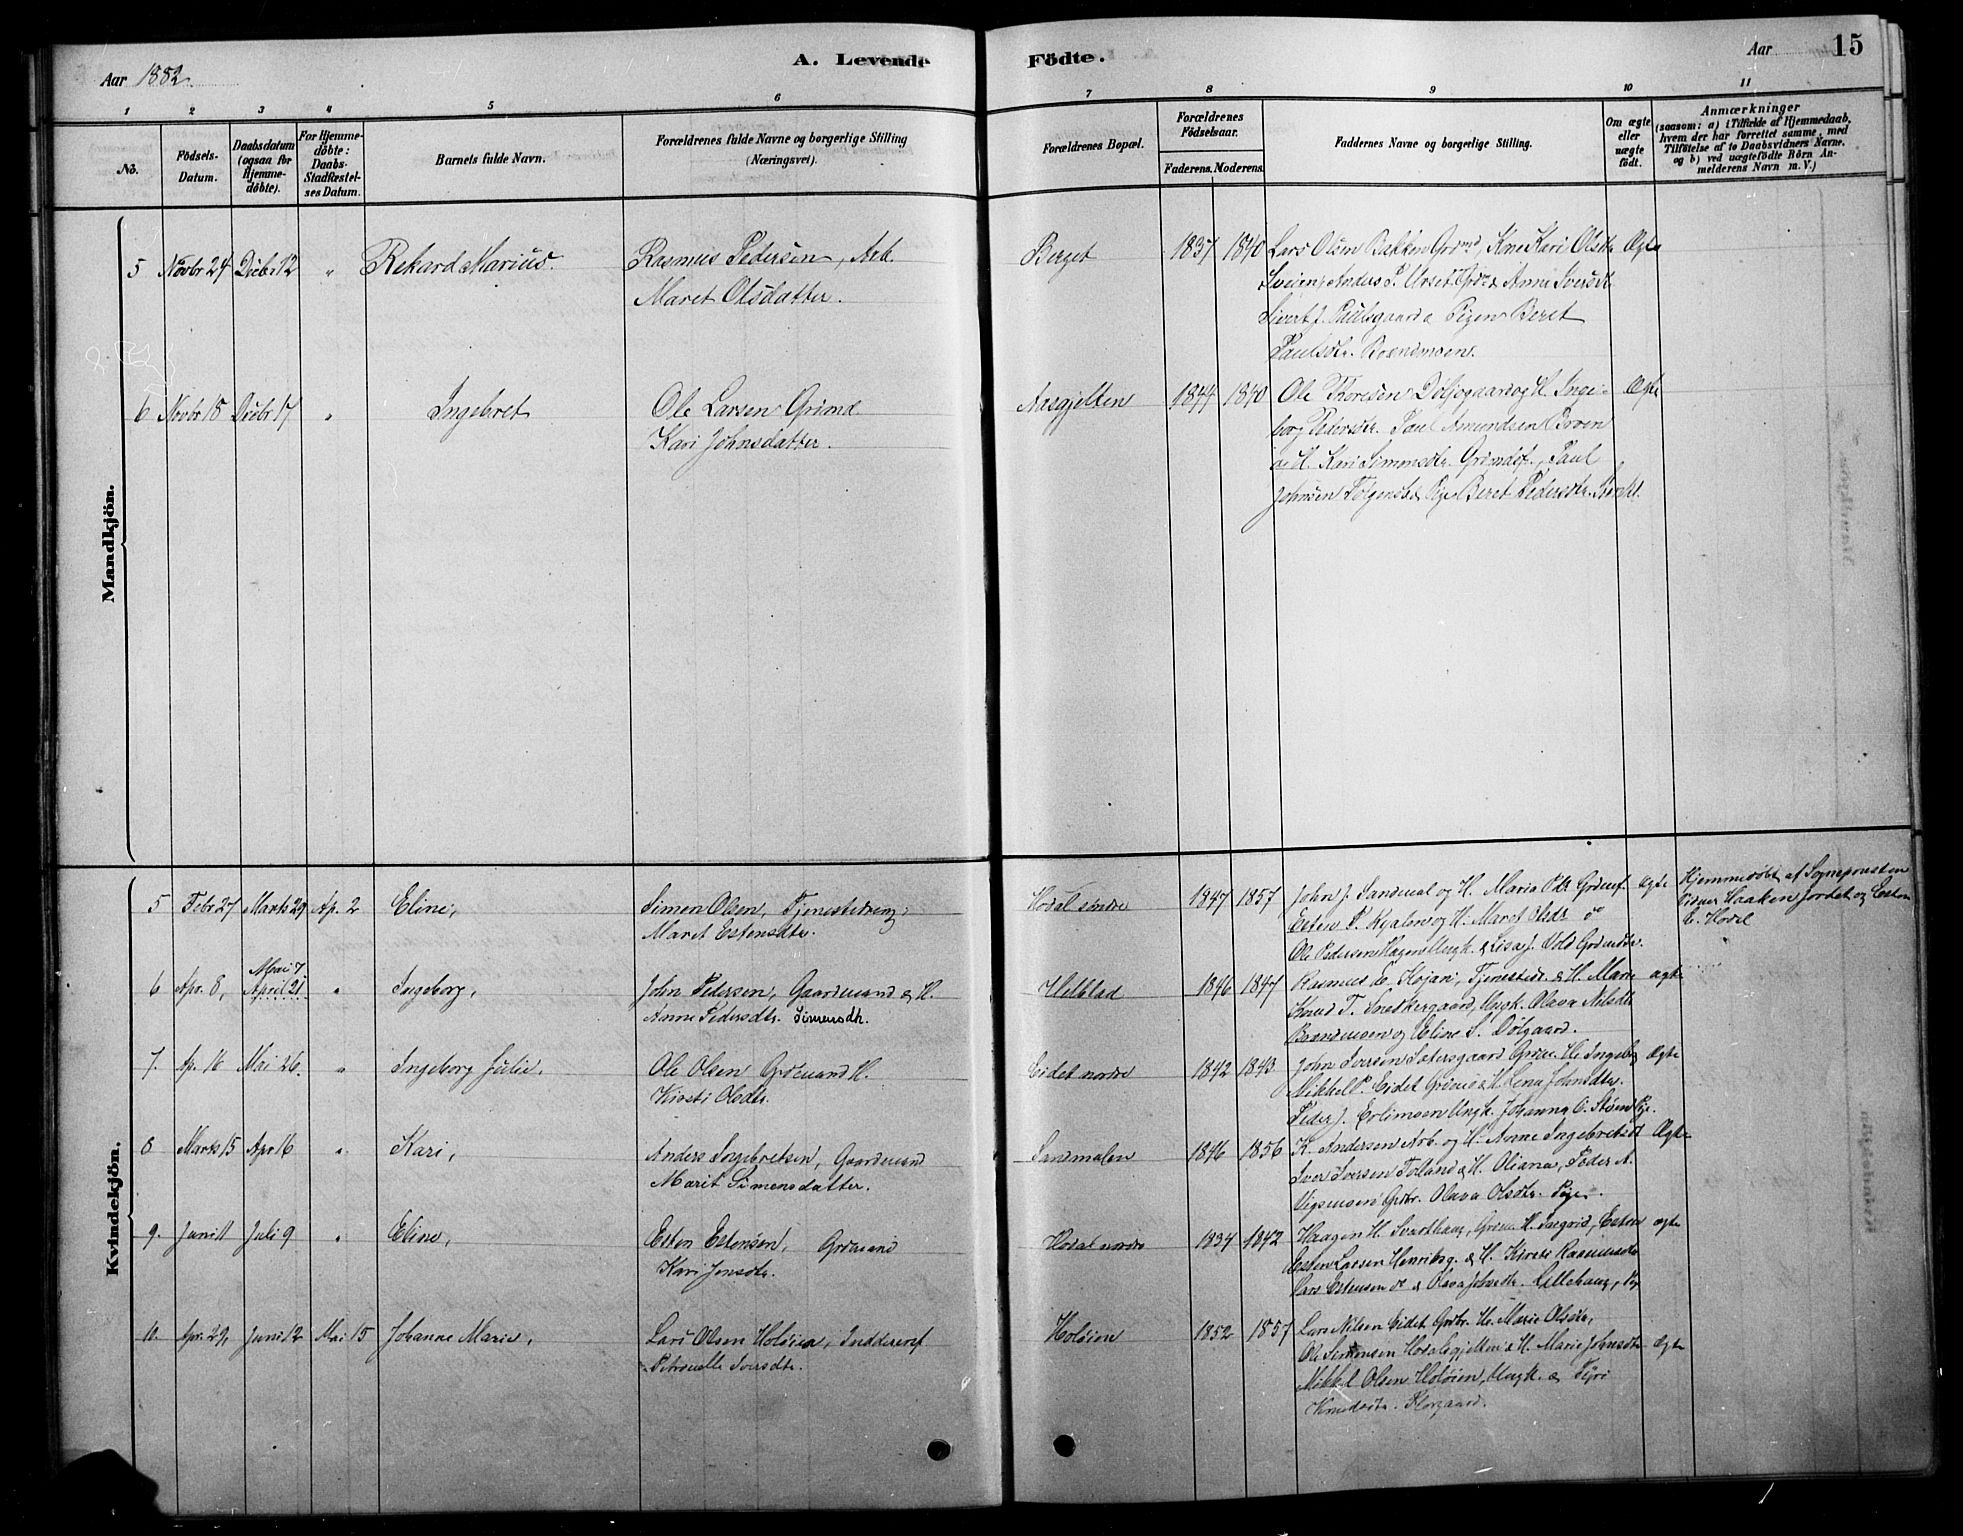 Aar 1882.
A. Levende
Födte.
Aar
15
1 2 3 4 5 6 7 8 9 10 11
No.
Födsels-
Datum.
Daabsdatum
(ogsaa for
Hjemme-
döbte).
For Hjemme-
döbte:
Daabs-
Stadfæstel-
ses Datum.
Barnets fulde Navn.
Forældrenes fulde Navne og borgerlige Stilling
(Næringsvei).
Forældrenes Bopæl.
Forældrenes
Födselsaar.
Faderens. Moderens.
Faddernes Navne og borgerlige Stilling.
Om ægte
eller
uægte
födt.
Anmærkninger
(saasom: a) i Tilfælde af Hjemmedaab,
hvem der har forrettet samme, med
Tilföielse af to Daabsvidners Navne,
og b) ved uægtefödte Börn An-
melderens Navn m. V.)
Mandkjön.
5 Novbr 24 Decbr 12 " Rekard Marius.
Rasmus Pedersen, Arb.
Maret Olsdatter.
Berget 1837 1840
Lars Olsen Bakken Grdmd, Kone Kari Olsdtr
Anders P. Urset Anne Iversdt
Sivert J. Paulsgaard Pigen Beret
Paulsdtr.
Ægte
6 Novbr 18 Decbr 17 " Ingebret
Ole Larsen Grdmd.
Kari Johnsdatter.
Aasgjelten 1844 1840
Ole Thoresen og H. Inge-
borg Pedersdtr. Paul Amundsen Broen
og H. Kari Simonsdtr. Paul
Johnsen Beret Pedersdtr.
Ægte
Kvindekjön.
5 Febr 27 Marts 29 Ap. 2 Eline,
Simon Olsen, Tjenestedreng,
Maret Estensdtr.
Hodal söndre 1847 1857
John J. Sandmal og H. Maria
Esten P. og H. Maret Olsdr do
Ole Pedersen Hagen Ungk. & Lisa J. Vold
ægte
Hjemmedöbt af Sognepresten
Haaken Jordet og Esten
E. Hodal
6 Apr. 8, Mai 7
April 21 " Ingeborg,
John Pedersen, Gaardmand & H.
Anne Pedersdtr. Simensdtr.
Helblad 1846 1847
Rasmus E. Hojan, Tjenestedr. & H. Marie
Knud T. Snedkergaard, Ungk. Olava Nilsdtr
Brandmoen og Eline S. Dölgaard.
ægte
7. Ap. 16 Mai 26. " Ingeborg Julie.
Ole Olsen Grdmand H.
Kirsti Olsdtr.
Eidet nordre 1842 1843
John Iversen Sætersgaard H. Ingeb
Mikkel P. Eidet & H. Lena Johnsdtr.
Peder J. Erlimoen Ungk. Johanna O. Pige.
Ægte
8 Marts 15 Apr 16 " Kari,
Anders Ingebretsen, Gaardmand
Marit Simensdatter.
Sandmalen 1846 1856
K. Andersen Arb. og H. Anne Ingebretsdt
Iver Iversen & H. Oliana, Peder A.
Olava Olsdtr. Pige.
Ægte
9. Juni 11 Juli 9 " Eline,
Esten Estensen, Grdmand
Kari Jensdtr.
Hodal nordre 1834 1842
Haagen H. Svarthaug, H. Ingrid, Esten
Esten Larsen & H. Kirsti Rasmusdtr
Lars Estensen do & Olava Johnsdtr. Lillehaug,
ægte
10. Apr. 29, Juni 12 Mai 15 Johanne Marie,
Lars Olsen Holöien, Inderst
Petronelle Iversdtr.
Holöien 1852 1857
Lars Nilsen Eidet Grdbr. H. Marie Olsdtr,
Ole Simonsen Hodalsgjelten & H. Marie Johnsdtr
Mikkel Olsen Holöien, Ungk. &
Knudsdtr.
Ægte